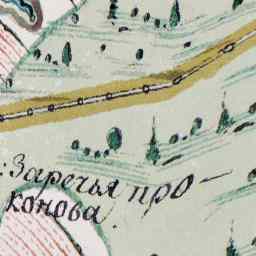 :Заречья про-
конова.